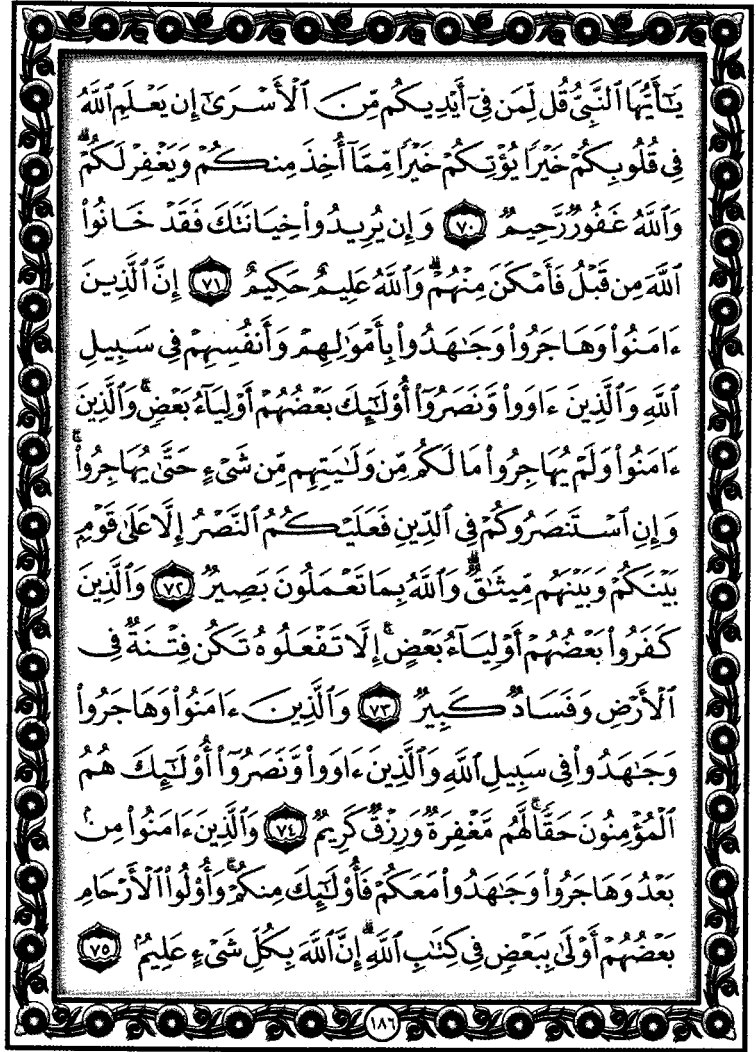 يَٰٓأَيُّهَا ٱلنَّبِىُّ قُل لِّمَن فِىٓ أَيْدِيكُم مِّنَ ٱلْأَسْرَىٰٓ إِن يَعْلَمِ ٱللَّهُ
فِى قُلُوبِكُمْ خَيْرًا يُؤْتِكُمْ خَيْرًا مِّمَّآ أُخِذَ مِنكُمْ وَيَغْفِرْ لَكُمْ ۗ
وَٱللَّهُ غَفُورٌ رَّحِيمٌ ٧٠ وَإِن يُرِيدُوا۟ خِيَانَتَكَ فَقَدْ خَانُوا۟
ٱللَّهَ مِن قَبْلُ فَأَمْكَنَ مِنْهُمْ ۗ وَٱللَّهُ عَلِيمٌ حَكِيمٌ ٧١ إِنَّ ٱلَّذِينَ
ءَامَنُوا۟ وَهَاجَرُوا۟ وَجَٰهَدُوا۟ بِأَمْوَٰلِهِمْ وَأَنفُسِهِمْ فِى سَبِيلِ
ٱللَّهِ وَٱلَّذِينَ ءَاوَوا۟ وَّنَصَرُوٓا۟ أُو۟لَٰٓئِكَ بَعْضُهُمْ أَوْلِيَآءُ بَعْضٍ ۚ وَٱلَّذِينَ
ءَامَنُوا۟ وَلَمْ يُهَاجِرُوا۟ مَا لَكُم مِّن وَلَٰيَتِهِم مِّن شَىْءٍ حَتَّىٰ يُهَاجِرُوا۟ ۚ
وَإِنِ ٱسْتَنصَرُوكُمْ فِى ٱلدِّينِ فَعَلَيْكُمُ ٱلنَّصْرُ إِلَّا عَلَىٰ قَوْمٍۭ
بَيْنَكُمْ وَبَيْنَهُم مِّيثَٰقٌ ۗ وَٱللَّهُ بِمَا تَعْمَلُونَ بَصِيرٌ ٧٢ وَٱلَّذِينَ
كَفَرُوا۟ بَعْضُهُمْ أَوْلِيَآءُ بَعْضٍ ۚ إِلَّا تَفْعَلُوهُ تَكُن فِتْنَةٌ فِى
ٱلْأَرْضِ وَفَسَادٌ كَبِيرٌ ٧٣ وَٱلَّذِينَ ءَامَنُوا۟ وَهَاجَرُوا۟
وَجَٰهَدُوا۟ فِى سَبِيلِ ٱللَّهِ وَٱلَّذِينَ ءَاوَوا۟ وَّنَصَرُوٓا۟ أُو۟لَٰٓئِكَ هُمُ
ٱلْمُؤْمِنُونَ حَقًّا ۚ لَّهُم مَّغْفِرَةٌ وَرِزْقٌ كَرِيمٌ ٧٤ وَٱلَّذِينَ ءَامَنُوا۟ مِنۢ
بَعْدُ وَهَاجَرُوا۟ وَجَٰهَدُوا۟ مَعَكُمْ فَأُو۟لَٰٓئِكَ مِنكُمْ ۚ وَأُو۟لُوا۟ ٱلْأَرْحَامِ
بَعْضُهُمْ أَوْلَىٰ بِبَعْضٍ فِى كِتَٰبِ ٱللَّهِ ۗ إِنَّ ٱللَّهَ بِكُلِّ شَىْءٍ عَلِيمٌۢ ٧٥
١٨٦